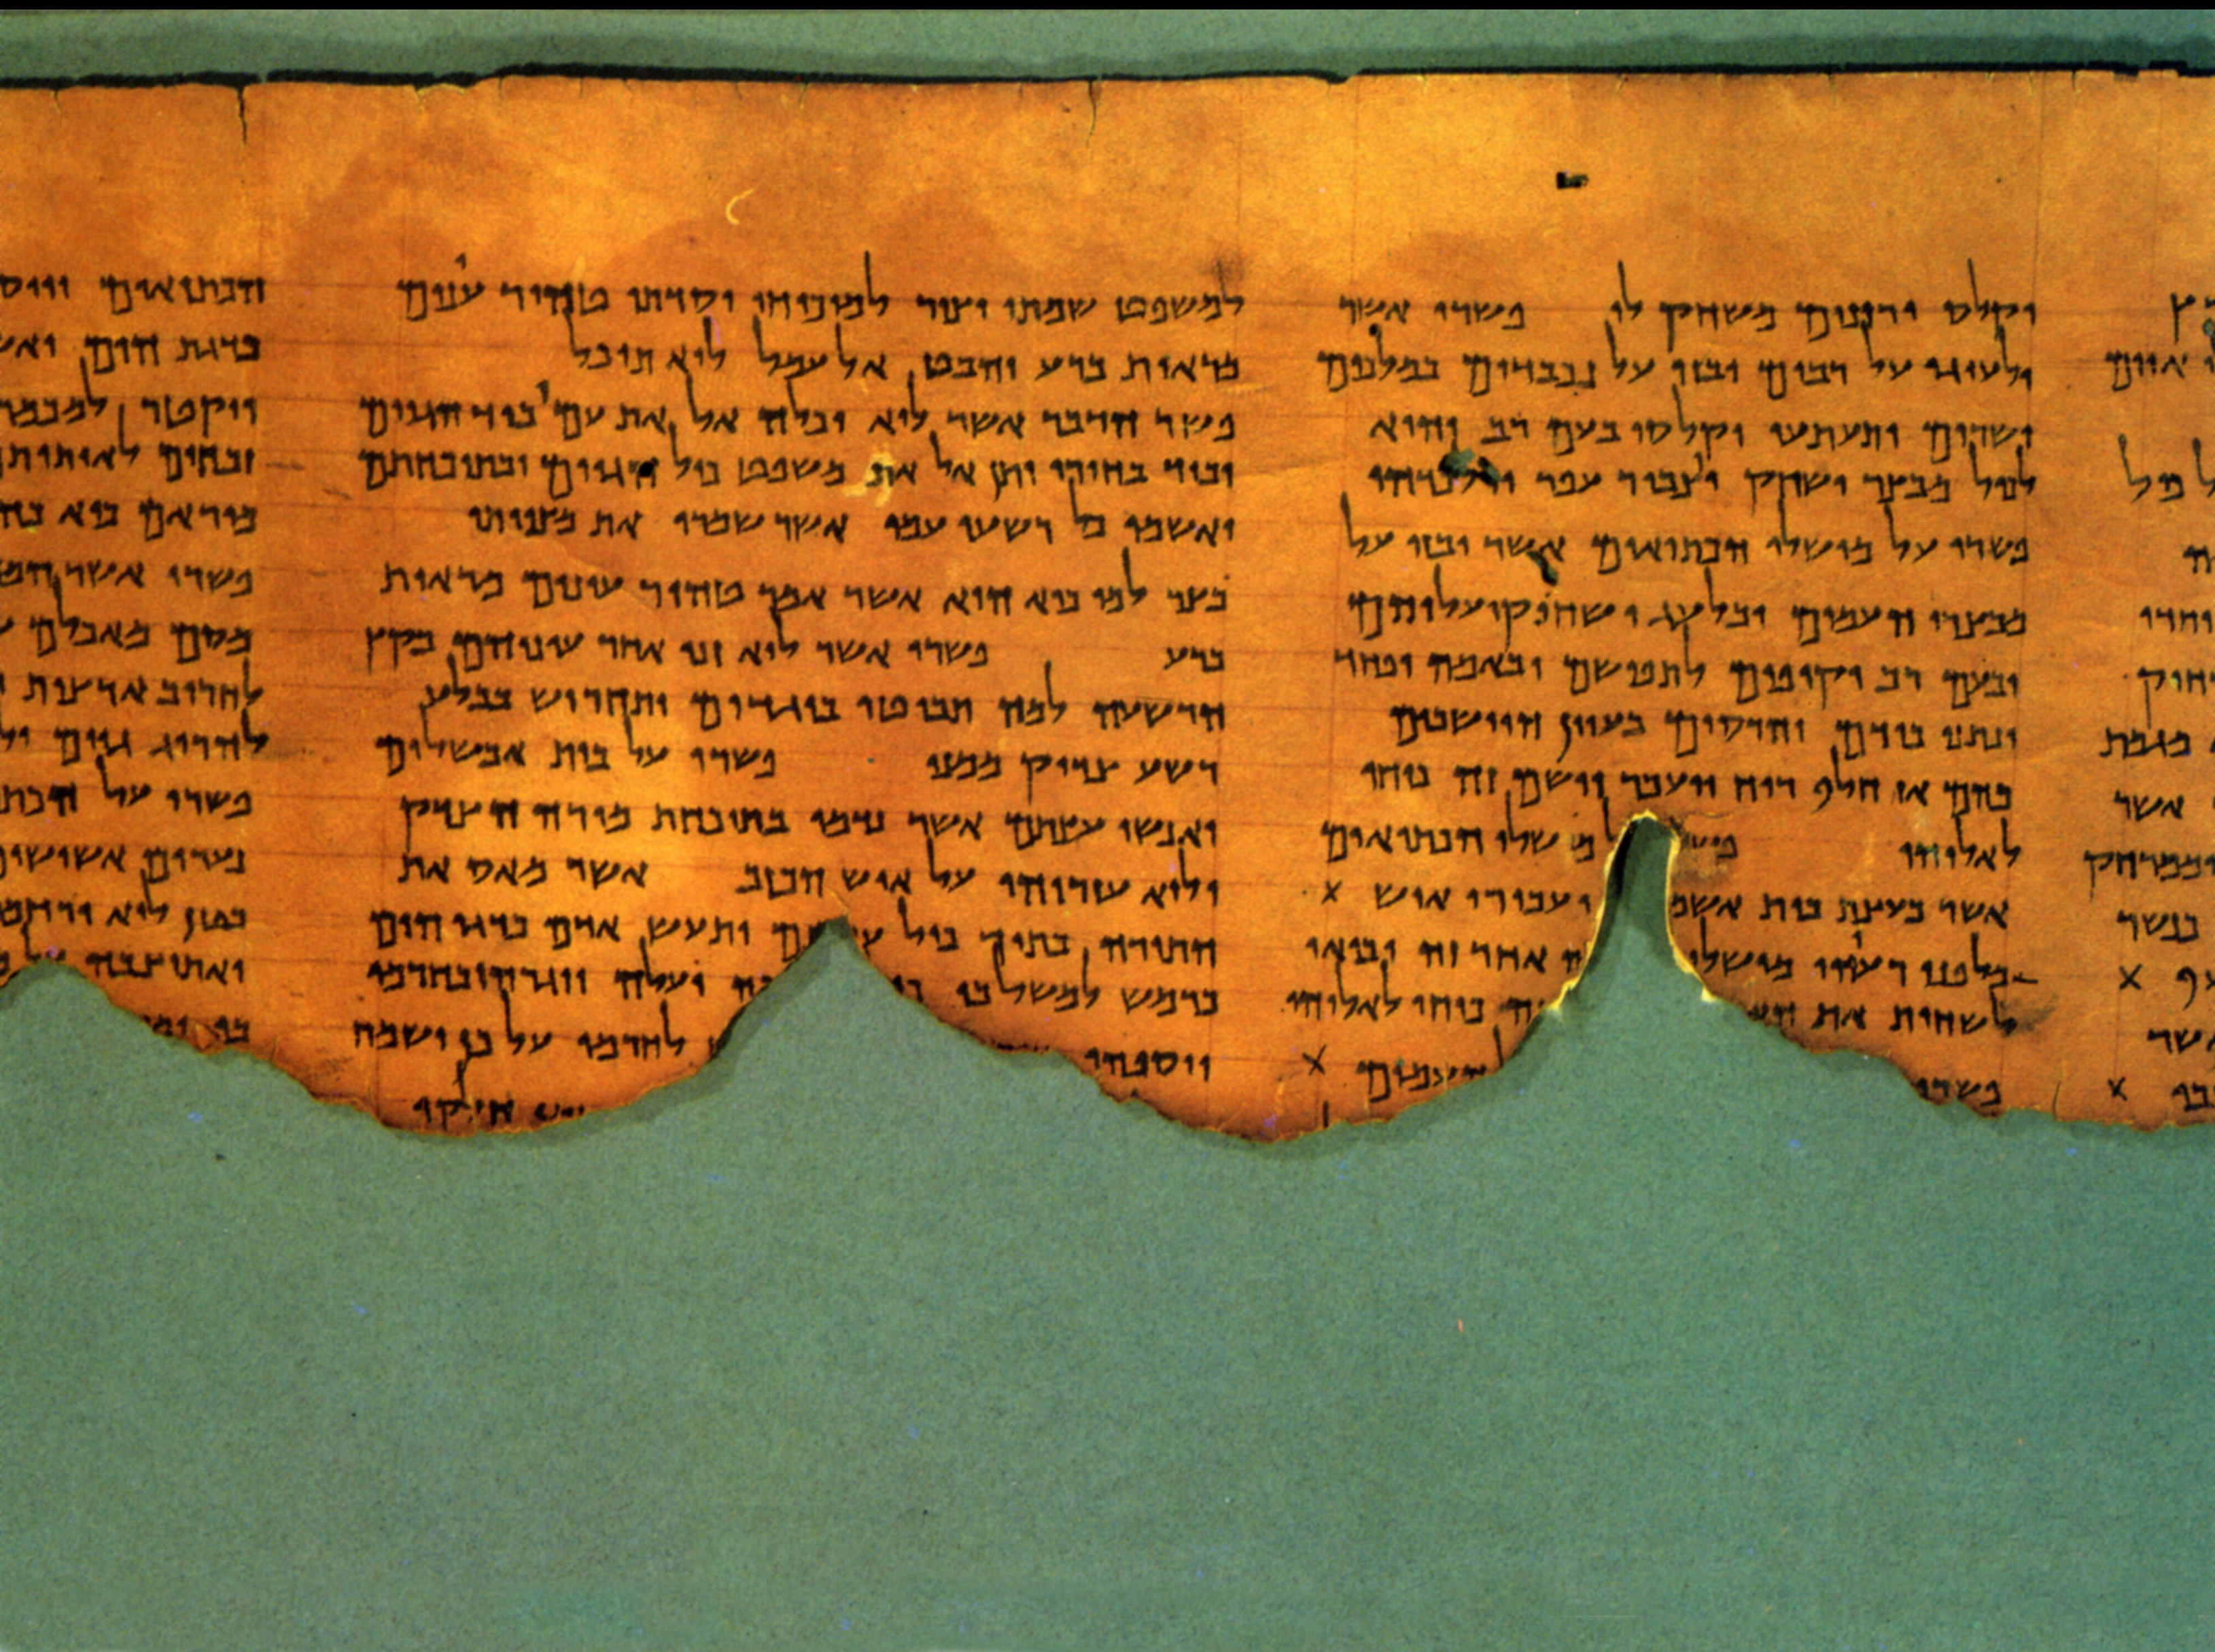 איום
כול
וחרו
רחוק
מגמת
אשר
וממרחק
כנשר
X
אשר
X
יקלס ורזנים משחק לו פשרו אשר
ילעיגו על רבים ובזו על נכבדים במלכים
ושרים יתעתעו וקלסו בעם רב והוא
לכול מבצר ישחק ויצבור עפר וילכדהו
פשרו על מושלי הכתיאים אשר יבזו על
מבצרי העמים ובלעג ישחוקו עליהם
ובעם רב יקיפום לתפושם ובאמה ופחד
ינתנו בידם והרסום בעוון היושבים
בהם אז חלף רוח ויעבר וישם זה כוחו
לאלוהו פשר ל מושלי הכתיאים
אשר בעצת בית אשמ יעבורו איש X
מלפני רעיהו מושלי ה אחר זה יבואו
לשחית את ה ה כוחו לאלוהו
פשרו העמים X
למשפט שמתו וצור למוכיחו יסדתו טהור עינים
מראות ברע והבט אל עמל לוא תוכל
פשר הדבר אשר לוא יכלה אל את עמו ביד הגוים
וביד בחירו יתן אל את משפט כול הגוים ובתוכחתם
יאשמו כל רשעי עמו אשר שמרו את מצוותו
בצר למו כיא הוא אשר אמר טהור עינים מראות
ברע פשרו אשר לוא זנו אחר עיניהם בקץ
הרשעה למה תביטו בוגדים ותחריש בבלע
רשע צדיק ממנו פשרו על בית אבשלום
ואנשי עצתם אשר נדמו בתוכחת מורה הצדק
ולוא עזרוהו על איש הכזב אשר מאס את
התורה בתוך כול ע ם ותעש אדם כדגי הים
כרמש למשל בו כה יעלה ויגרהו בחרמו
ויספהו לחרמו על כן ישמח
הכתיאים ויוס
כדגת הים ואש
ויקטר למכמר
זבחים לאותות
מוראם כיא
פשרו אשר המ
מסם מאכלם
לחריב ארצות
להריג גוים
פשרו על הכת
נערים אשישים
בטן לוא ירחמ
ואתיצבה על